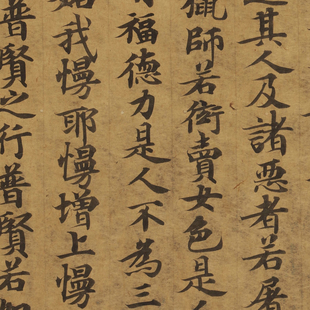 其人及諸惡者若屠
獵師若衒賣女色是人
福德力是人不為三
我慢耶慢增上慢
普賢之行普賢若如